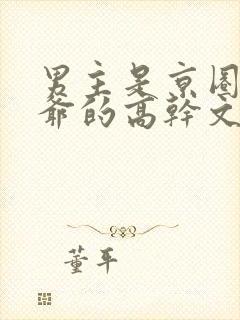 男主是京圈
爷的高幹文
董平